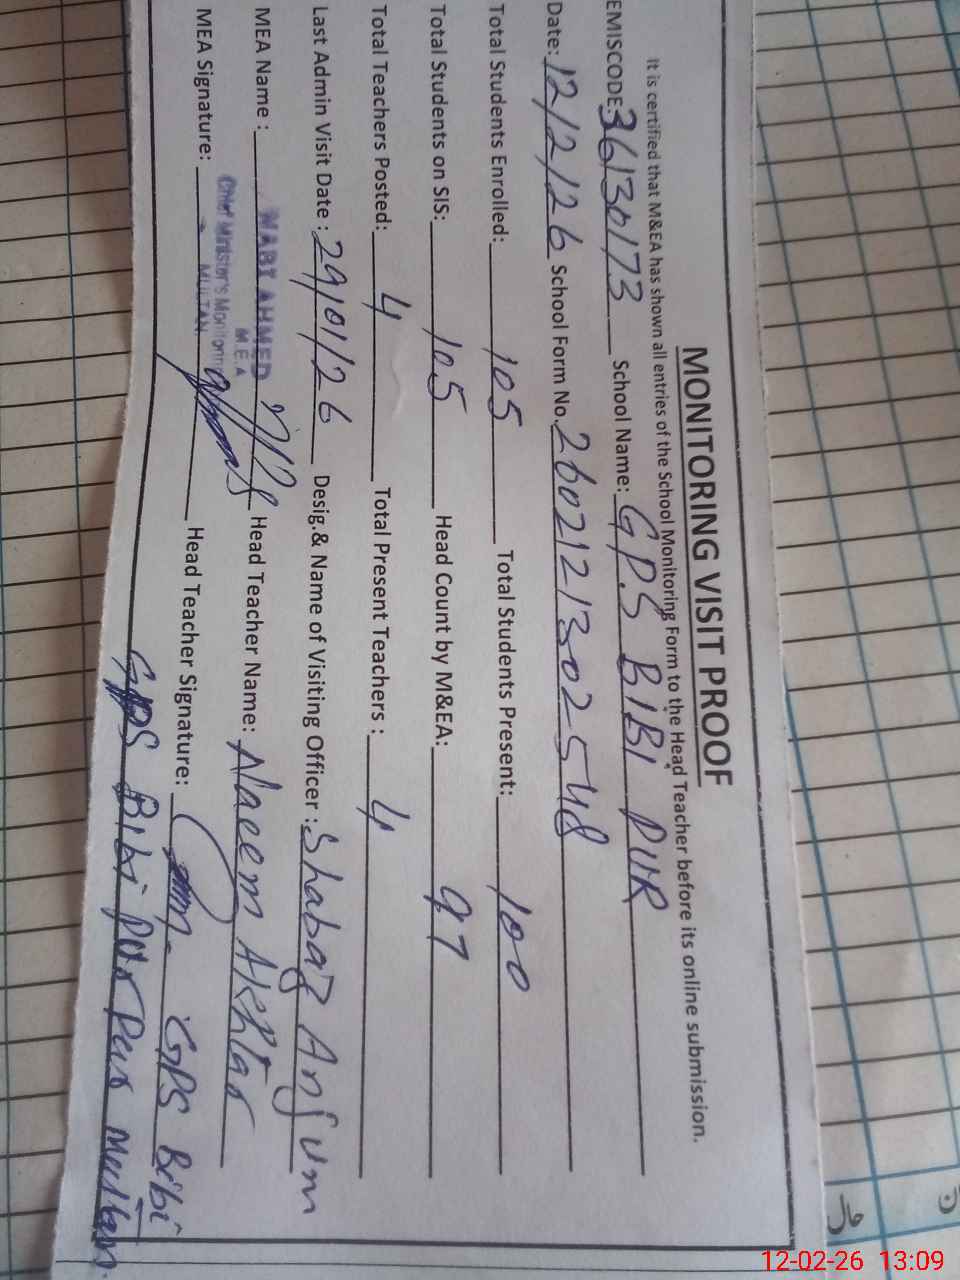 MONITORING VISIT PROOF
It is certified that M&EA has shown all entries of the School Monitoring Form to the Head Teacher before its online submission.
EMISCODE: 36130173 School Name: G.P.S BIBI PUR
Date: 12/2/26 School Form No. 2602121302-548
Total Students Enrolled: 105 Total Students Present: 100
Total Students on SIS: 105 Head Count by M&EA: 97
Total Teachers Posted: 4 Total Present Teachers : 4
Last Admin Visit Date : 29/01/26 Desig.& Name of Visiting Officer : Shabaz Anjum
MEA Name : AHMED Head Teacher Name: Naeem Akhtar
M.E.A
Chief Minister's Monitoring
MULTAN
MEA Signature: Head Teacher Signature: GPS Bibi
GPS Bibi Pur Multan
12-02-26 13:09